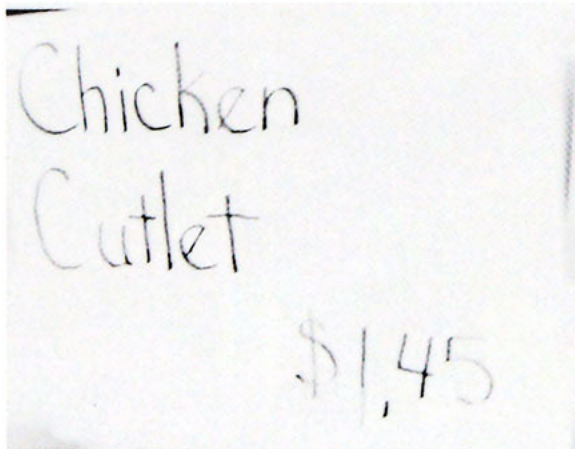 Chicken
Cutlet
$1,45